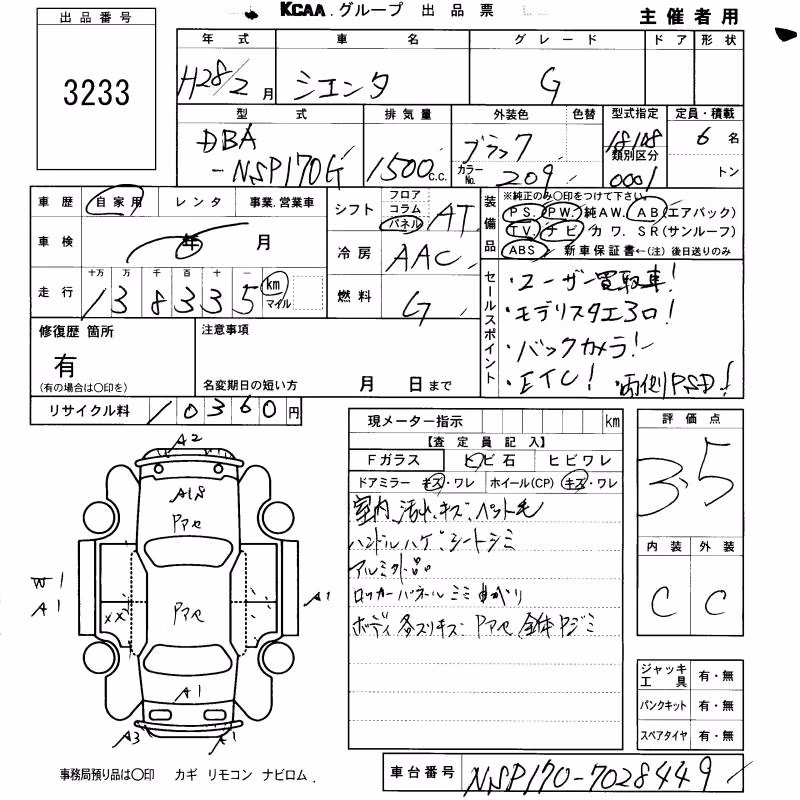 KCAA.グループ 出品票
主催者用
出品番号
3233
年式 車名 グレード ドア 形状
H28/2月 シエンタ G
型式 排気量 外装色 色替 型式指定 定員・積載
DBA-NSP170G 1500c.c. ブラック 18108 6名
カラーNo. 209 類別区分 0001 トン
車歴 自家用 レンタ 事業.営業車
車検 年 月
走行 十万 万 千 百 十 一
138335 km マイル
シフト フロア コラム パネル AT
冷房 AAC
燃料 G
装備品 ※純正のみ〇印をつけて下さい。
PS. PW. 純AW. AB(エアバック)
TV. ナビ カワ. SR(サンルーフ)
ABS 新車保証書←(注)後日送りのみ
セールスポイント
・ユーザー買取車!
・モデリスタエアロ!
・バックカメラ!
・ETC! 両側PSD!
修復歴 箇所
有
(有の場合は〇印を)
注意事項
名変期日の短い方 月 日まで
リサイクル料 10360円
現メーター指示 km
【査定員記入】
Fガラス ヒビ石 ヒビワレ
ドアミラー キズ・ワレ ホイール(CP) キズ・ワレ
室内 汚れ、キズ、ペット毛
ハンドルハゲ シートシミ
アルミ外品
ロッカーパネル ミミ まがり
ボディ 各スリキズ Pアセ 全体
評価点
3.5
内装 外装
C C
ジャッキ工具 有・無
パンクキット 有・無
スペアタイヤ 有・無
A2
A18
Pアセ
W1
A1
XX
Pアセ
A1
A1
A3
A1
事務局預り品は〇印 カギ リモコン ナビロム.
車台番号 NSP170-7028449